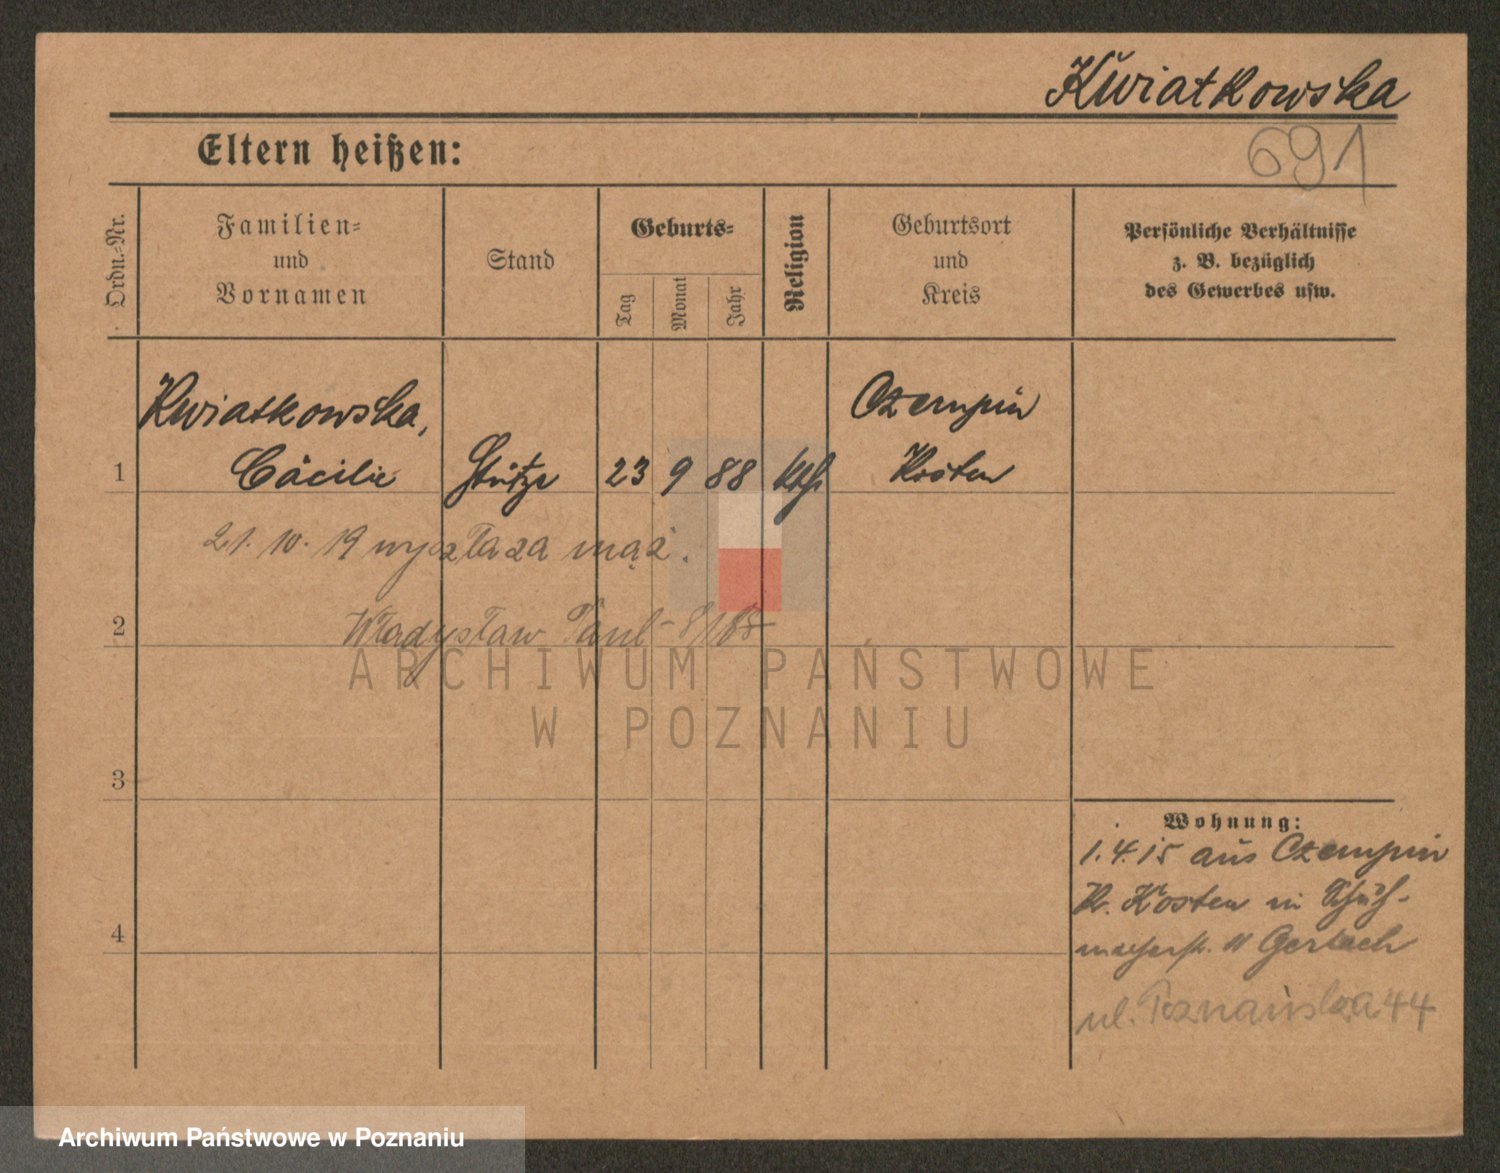 Kwiatkowska
691
Eltern heißen:
Ordn.-Nr.
Familien-
und
Vornamen
Stand
Geburts-
Tag
Monat
Jahr
Religion
Geburtsort
und
Kreis
Persönliche Verhältnisse
z. B. bezüglich
des Gewerbes usw.
1
Kwiatkowska,
Cäcilie
Stütze
23 9 88 kth.
Czempin
Kosten
21. 10. 19 wyszła za mąż.
2
Władysław
ARCHIWUM PAŃSTWOWE
W POZNANIU
3
4
Wohnung:
1.4.15 aus Czempin
Kr. Kosten in Schuh-
macherstr. 11 Gerlach
ul. Poznańska 44
Archiwum Państwowe w Poznaniu